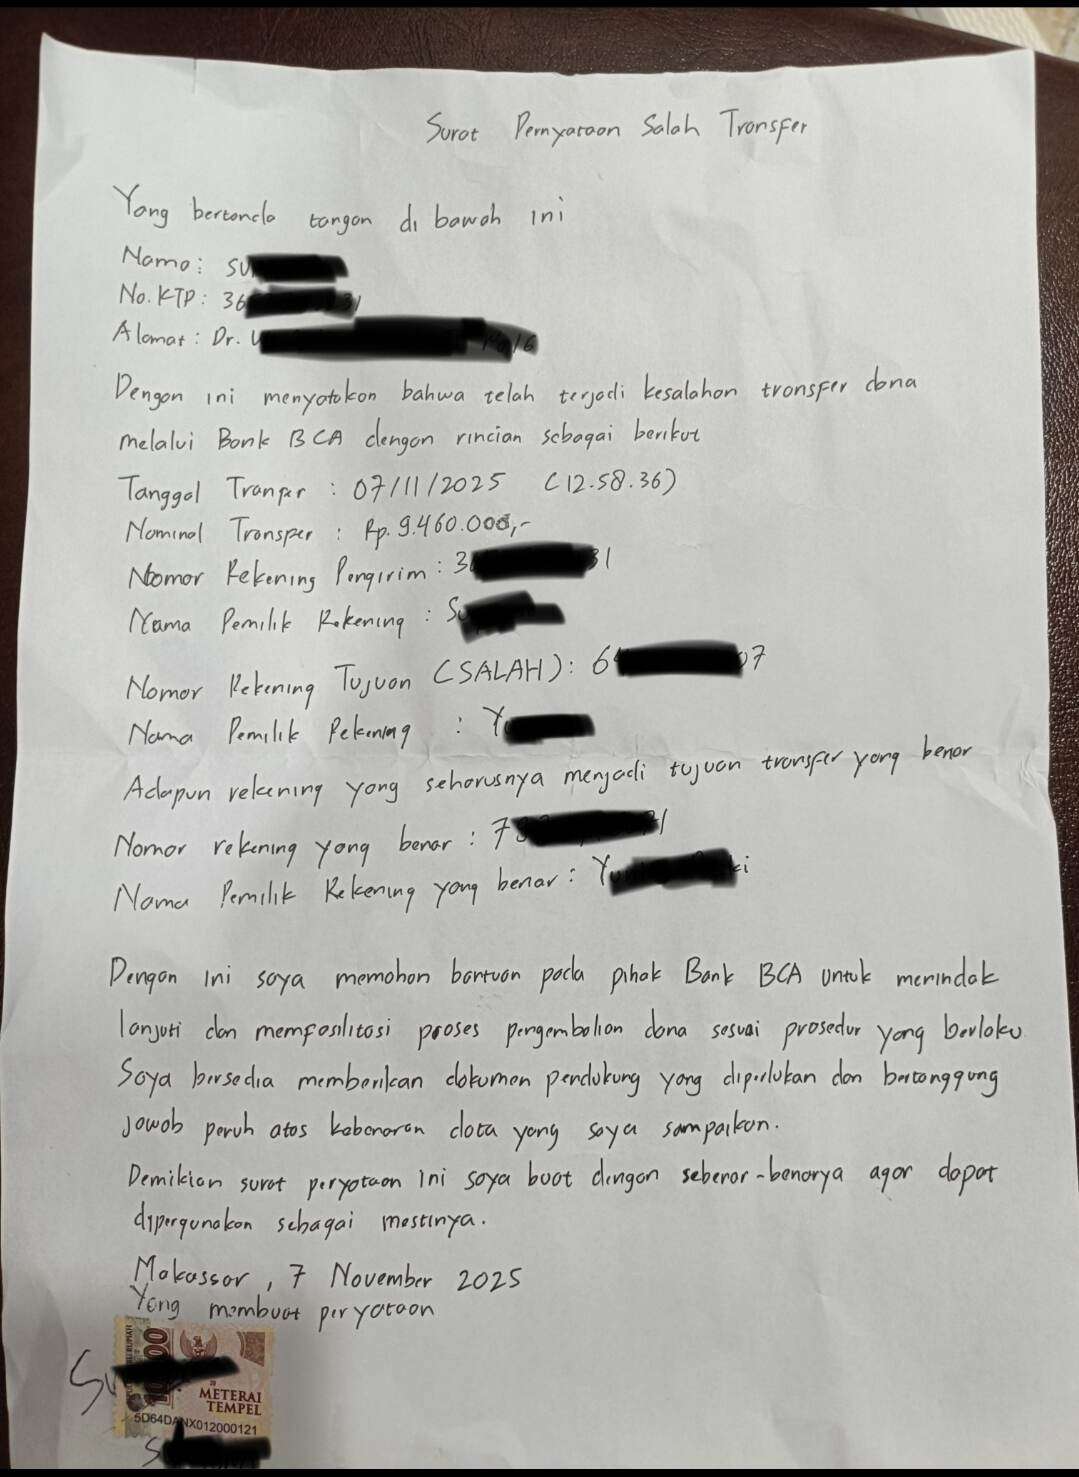 Surat Pernyataan Salah Transfer
Yang bertanda tangan di bawah ini
Nama: SU
No. KTP: 36 31
Alamat: Dr.
Dengan ini menyatakan bahwa telah terjadi kesalahan transfer dana
melalui Bank BCA dengan rincian sebagai berikut
Tanggal Tranper : 07/11/2025 (12.58.36)
Nominal Transper : Rp. 9.460.000,-
Nomor Rekening Pengirim : 3 31
Nama Pemilik Rekening : Su
Nomor Rekening Tujuan (SALAH): 6 07
Nama Pemilik Rekening : Y
Adapun rekening yang seharusnya menjadi tujuan transfer yang benar
Nomor rekening yang benar : 7 1
Nama Pemilik Rekening yang benar : Y ki
Dengan ini saya memohon bantuan pada pihak Bank BCA untuk menindak
lanjuti dan memfasilitasi proses pengembalian dana sesuai prosedur yang berlaku
Saya bersedia memberikan dokumen pendukung yang diperlukan dan bertanggung
jawab penuh atas kebenaran data yang saya sampaikan.
Demikian surat peryataan ini saya buat dengan sebenar-benarya agar dapat
dipergunakan sebagai mestinya.
Makassar, 7 November 2025
Yang membuat peryataan
Su
METERAI
TEMPEL
5D64DANX012000121
S